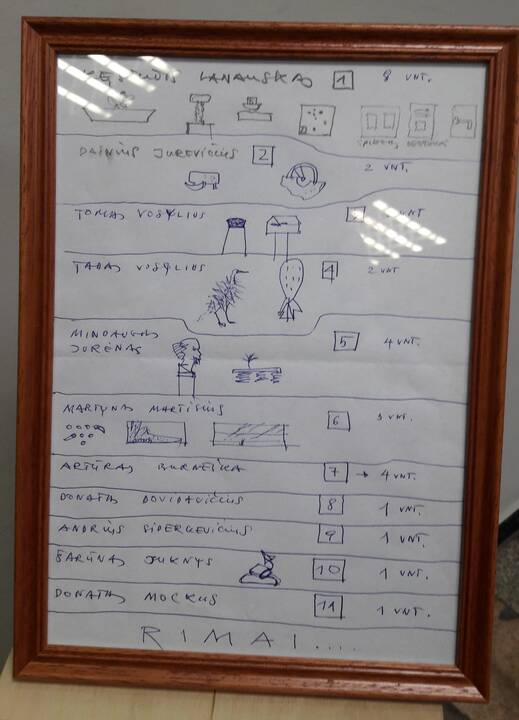 KĘSTUTIS LANAUSKAS 1 8 VNT.
DAINIUS JUREVIČIUS 2 2 VNT.
TOMAS VOSYLIUS VNT
TADAS VOSYLIUS 4 2 VNT
MINDAUGAS
JURĖNAS 5 4 VNT.
MARTYNAS MARTIŠIUS 6 3 VNT.
ARTŪRAS BURNEIKA 7 → 4 VNT.
DONATAS DOVIDAVIČIUS 8 1 VNT.
ANDRIUS SIDERKEVIČIUS 9 1 VNT.
ŠARŪNAS JUKNYS 10 1 VNT.
DONATAS MOCKUS 11 1 VNT.
RIMAI....